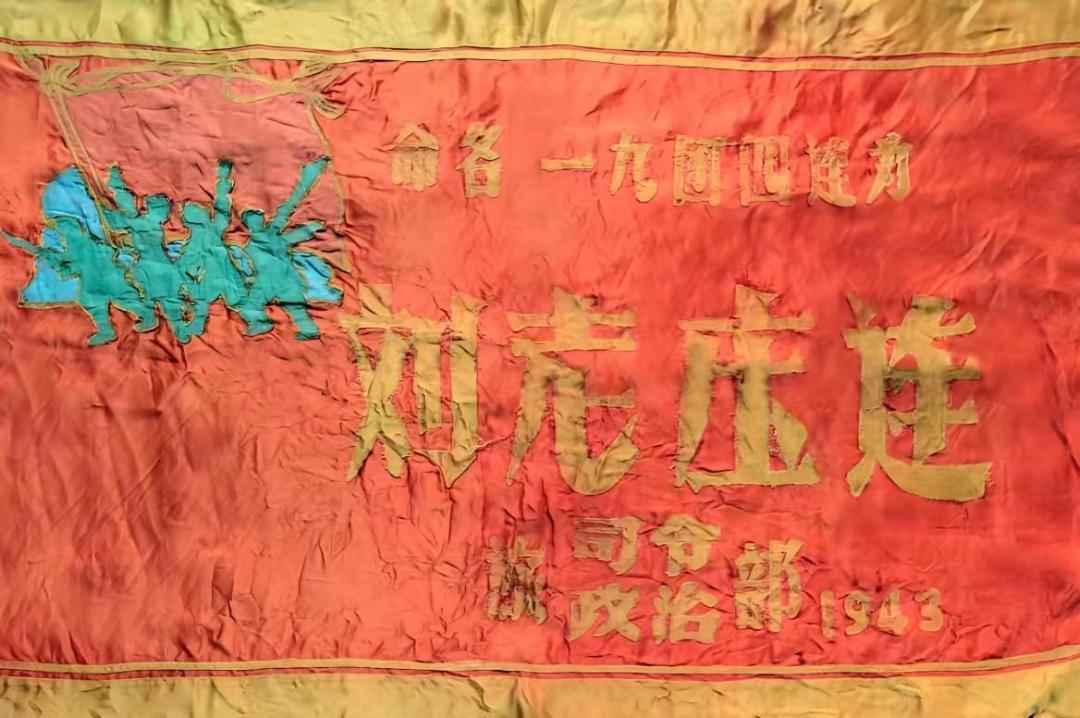 命名 一九团四连为
刘老庄连
旅 司令
政治 部 1943